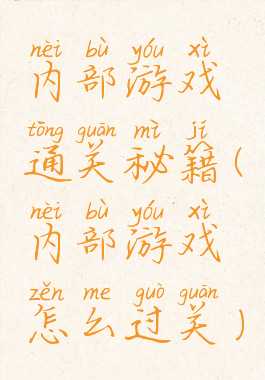 nèi bù yóu xì
内部游戏
tōng guān mì jí
通关秘籍(
nèi bù yóu xì
内部游戏
zěn me guò guān
怎么过关)